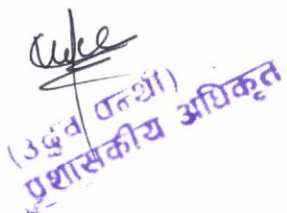 (उद्धव पन्थी)
प्रशासकीय अधिकृत